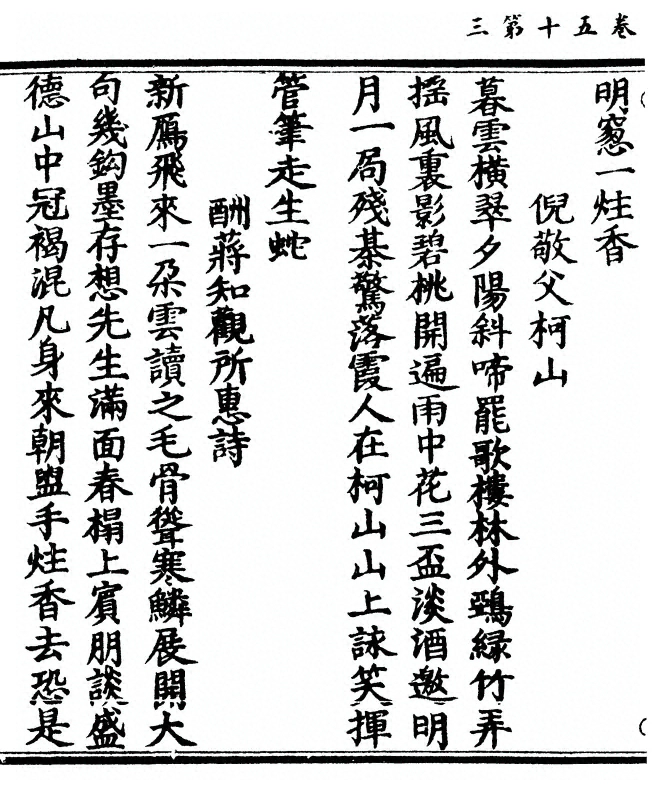 卷五十第三
明窻一炷香
倪敬父柯山
暮雲橫翠夕陽斜啼罷歌樓林外鵶綠竹弄
摇風裏影碧桃開遍雨中花三盃淡酒邀明
月一局殘棊驚落霞人在柯山山上詠笑揮
管筆走生蛇
酬蔣知觀所惠詩
新鴈飛來一朶雲讀之毛骨聳寒鱗展開大
句幾鈎墨存想先生滿面春榻上賓朋談盛
德山中冠褐混凡身來朝盥手炷香去恐是